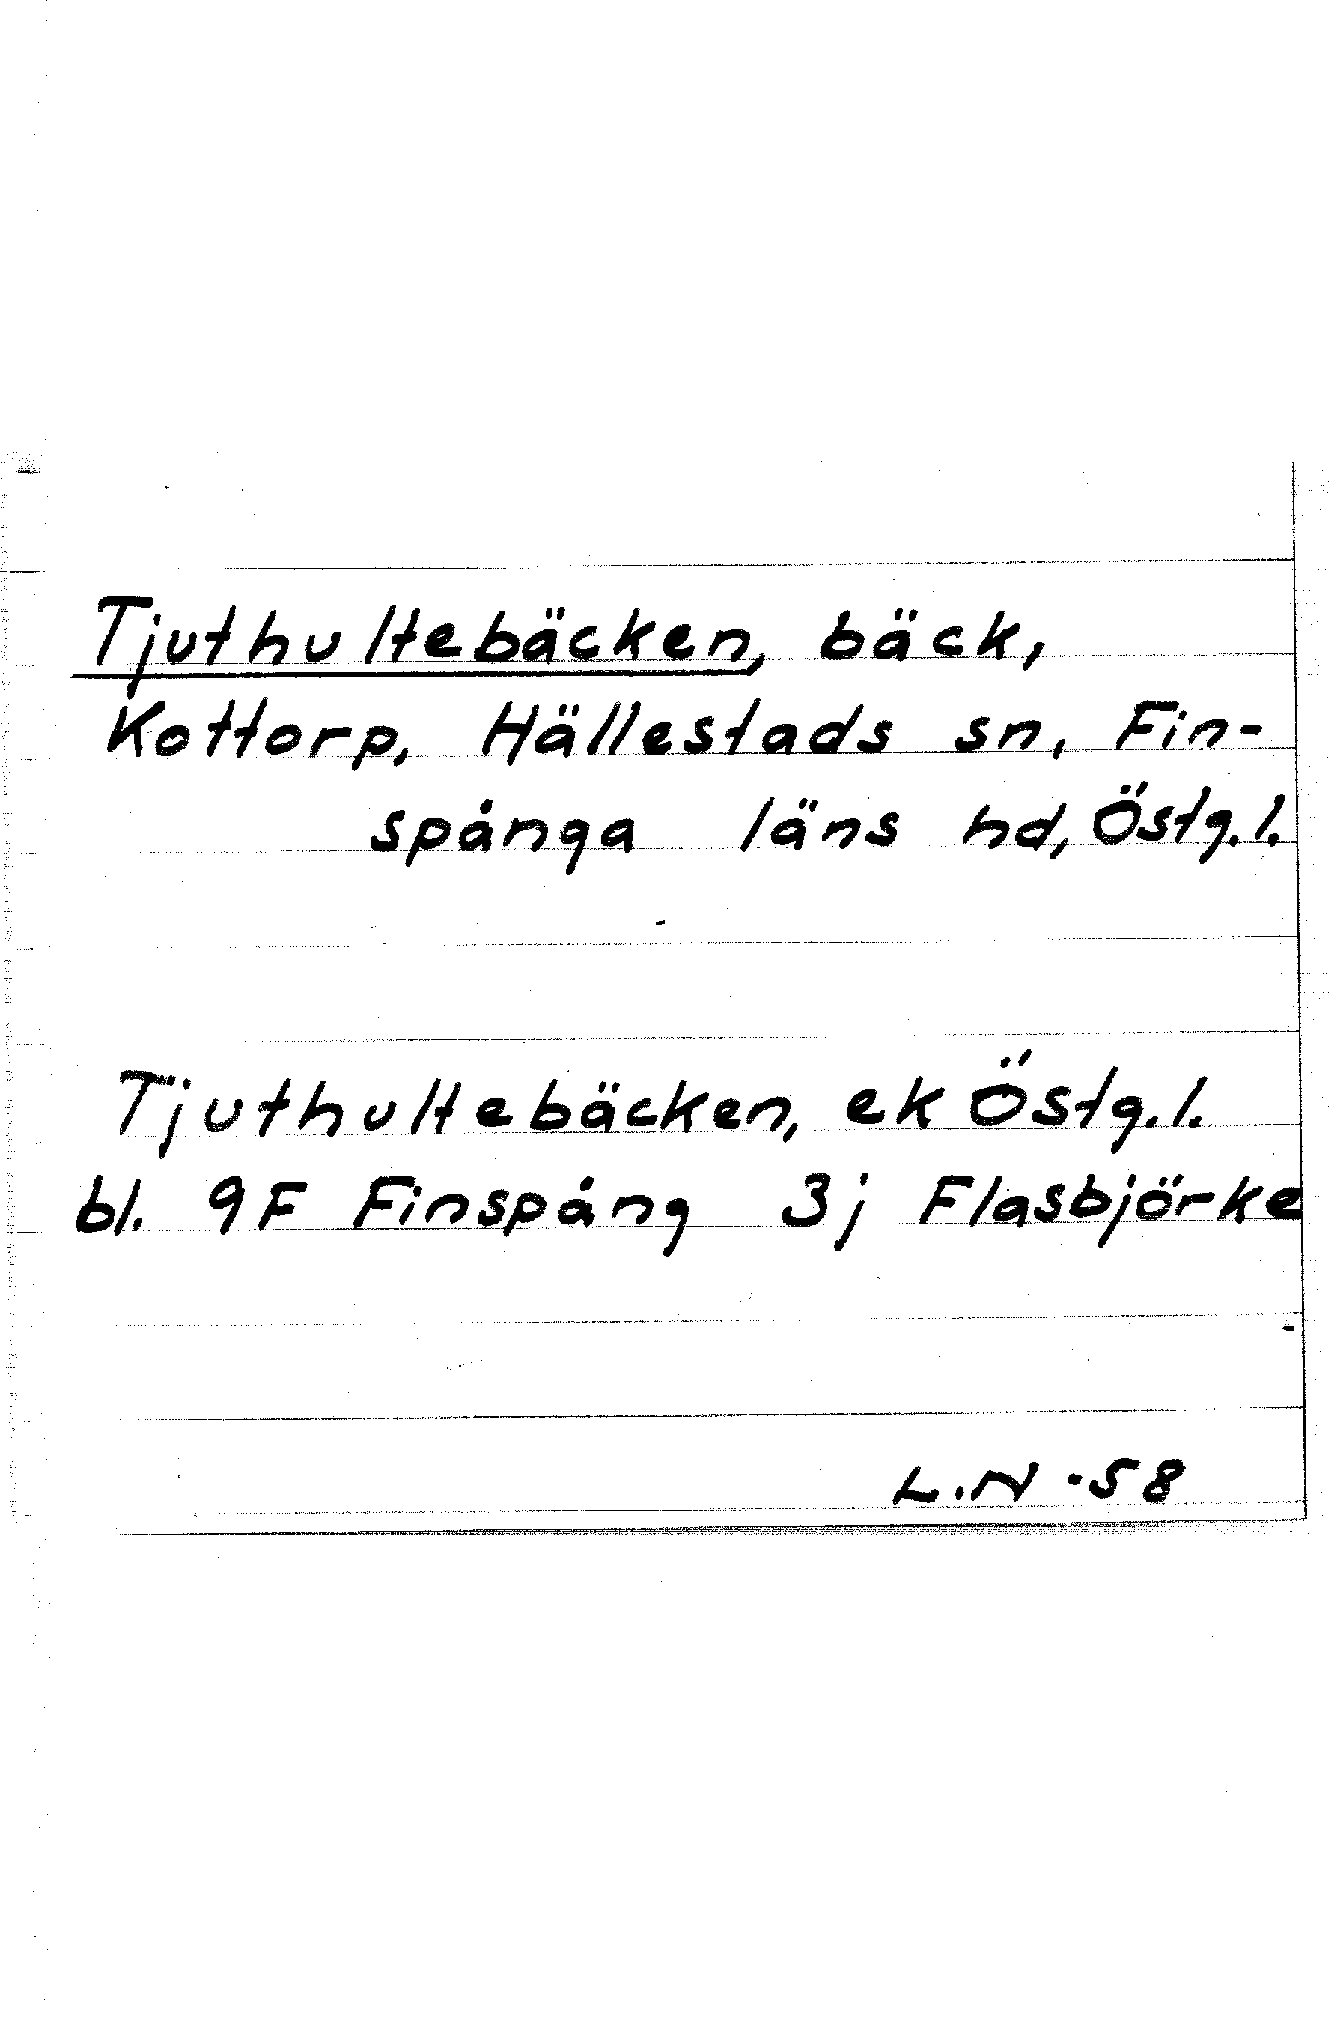 Tjuthultebäcken, bäck,
Kottorp, Hällestads sn, Fin-
spånga läns hd, Östg.l.
Tjuthultebäcken, ek Östg.l.
bl. 9F Finspång 3j Flasbjörke
L.N -58